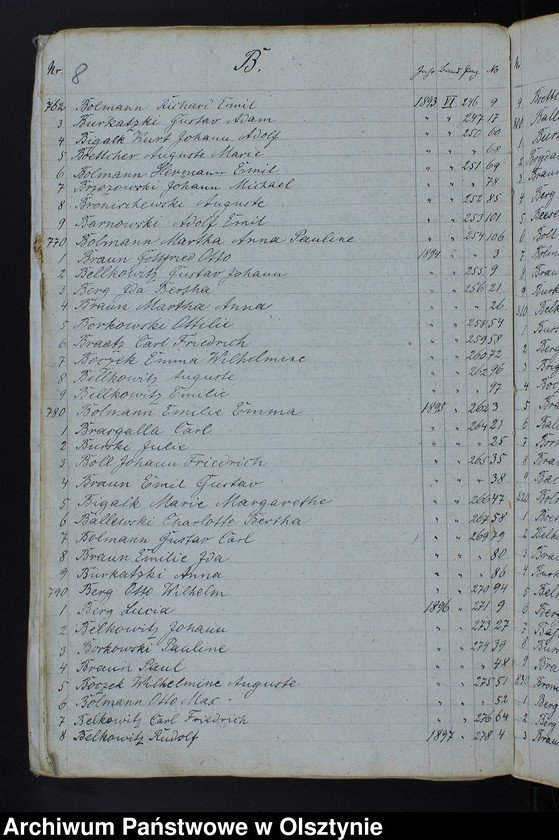 8
B.
Nr. Jahr Band Pag. No
762 Bolmann Richard Emil 1893 VI 246 9
3 Burkatzki Gustav Adam " " 247 17
4 Bigalk Kurt Johann Adolf " " 250 60
5 Boettcher Auguste Marie " " " 68
6 Bolmann Hermann Emil " " 251 69
7 Brzozowski Johann Michael " " " 78
8 Broniszewski Auguste " " 252 85
9 Barnowski Adolf Emil " " 253 101
770 Bolmann Martha Anna Pauline " " 254 106
1 Braun Gottfried Otto 1894 " " 3
2 Bellkowitz Gustav Johann " " 255 9
3 Berg Ida Bertha " " 256 21
4 Braun Martha Anna " " " 26
5 Borkowski Ottilie " " 258 54
6 Braatz Carl Friedrich " " 259 58
7 Boczek Emma Wilhelmine " " 260 72
8 Bellkowitz Auguste " " 262 96
9 Bellkowitz Emilie " " " 97
780 Bolmann Emilie Emma 1895 " 262 3
1 Brargalla Carl " " 264 21
2 Burski Julie " " " 25
3 Boll Johann Friedrich " " 265 35
4 Braun Emil Gustav " " " 38
5 Bigalk Marie Margarethe " " 266 47
6 Ballewski Charlotte Bertha " " 267 58
7 Bolmann Gustav Carl " " 269 79
8 Braun Emilie Ida " " " 80
9 Burkatzki Anna " " " 86
790 Berg Otto Wilhelm " " 270 94
1 Berg Lucia 1896 " 271 9
2 Belkowitz Johann " " 273 27
3 Borkowski Pauline " " 274 39
4 Braun Paul " " " 48
5 Boczek Wilhelmine Auguste " " 275 51
6 Bolmann Otto Max " " " 52
7 Belkowitz Carl Friedrich " " 276 64
8 Belkowitz Rudolf 1897 " 278 4
Archiwum Państwowe w Olsztynie